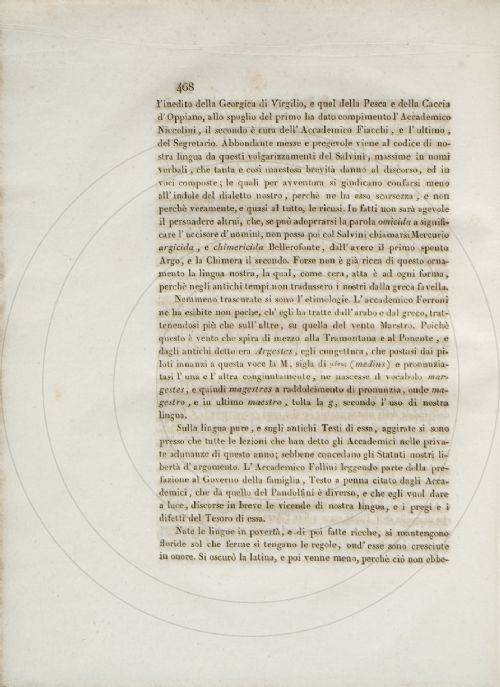 468
l'inedito della Georgica di Virgilio, e quel della Pesca e della Caccia
d'Oppiano, allo spoglio del primo ha dato compimento l'Accademico
Niccolini, il secondo è cura dell'Accademico Fiacchi, e l'ultimo,
del Segretario. Abbondante messe e pregevole viene al codice di no-
stra lingua da questi volgarizzamenti del Salvini, massime in nomi
verbali, che tanta e così maestosa brevità danno al discorso, ed in
voci composte; le quali per avventura si giudicano confarsi meno
all'indole del dialetto nostro, perchè ne ha esso scarsezza, e non
perchè veramente, e quasi al tutto, le ricusi. In fatti non sarà agevole
il persuadere altrui, che, se può adoperarsi la parola omicida a signifi-
care l'uccisore d'uomini, non possa poi col Salvini chiamarsi Mercurio
argicida, e chimericida Bellerofonte, dall'avere il primo spento
Argo, e la Chimera il secondo. Forse non è già ricca di questo orna-
mento la lingua nostra, la qual, come cera, atta è ad ogni forma,
perchè negli antichi tempi non tradussero i nostri dalla greca favella.
Nemmeno trascurate si sono l'etimologie. L'accademico Ferroni
ne ha esibite non poche, ch'egli ha tratte dall'arabo e dal greco, trat-
tenendosi più che sull'altre, su quella del vento Maestro. Poichè
questo è vento che spira di mezzo alla Tramontana e al Ponente, e
dagli antichi detto era Argestes, egli congettura, che postasi dai pi-
loti innanzi a questa voce la M, sigla di (medius) e pronunzia-
tasi l'una e l'altra congiuntamente, ne nascesse il vocabolo mar-
gestes, e quindi magestres a raddolcimento di pronunzia, onde ma-
gestro, e in ultimo maestro, tolta la g, secondo l'uso di nostra
lingua.
Sulla lingua pure, e sugli antichi Testi di essa, aggirate si sono
presso che tutte le lezioni che han detto gli Accademici nelle priva-
te adunanze di questo anno; sebbene concedano gli Statuti nostri li-
bertà d'argomento. L'Accademico Follini leggendo parte della pre-
fazione al Governo della famiglia, Testo a penna citato dagli Acca-
demici, che da quello del Pandolfini è diverso, e che egli vuol dare
a luce, discorse in breve le vicende di nostra lingua, e i pregi e i
difetti del Tesoro di essa.
Nate le lingue in povertà, e di poi fatte ricche, si mantengono
floride sol che ferme si tengano le regole, ond'esse sono cresciute
in onore. Si oscurò la latina, e poi venne meno, perchè ciò non ebbe-